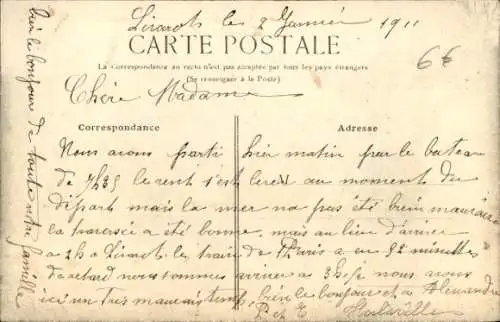 Livarot le 2 Janvier 1911
CARTE POSTALE
6€
La Correspondance au recto n'est pas acceptée par tous les pays étrangers
(Se renseigner à la Poste)
Chère Madame
Correspondance
Adresse
Nous avons parti hier matin par le bateau
de 7h35 le vent s'est au moment du
départ mais la mer na pas été bien mauvaise
la traversée a été bonne. mais au lieu d'arriver
a 2h a Livarot le train de Paris a eu 52 minutes
de retard nous sommes arriver a 3h nous avons
ici un tres mauvais temps, bien le bonjour et a Alexandre
P et E
bien le bonjour de toute notre famille